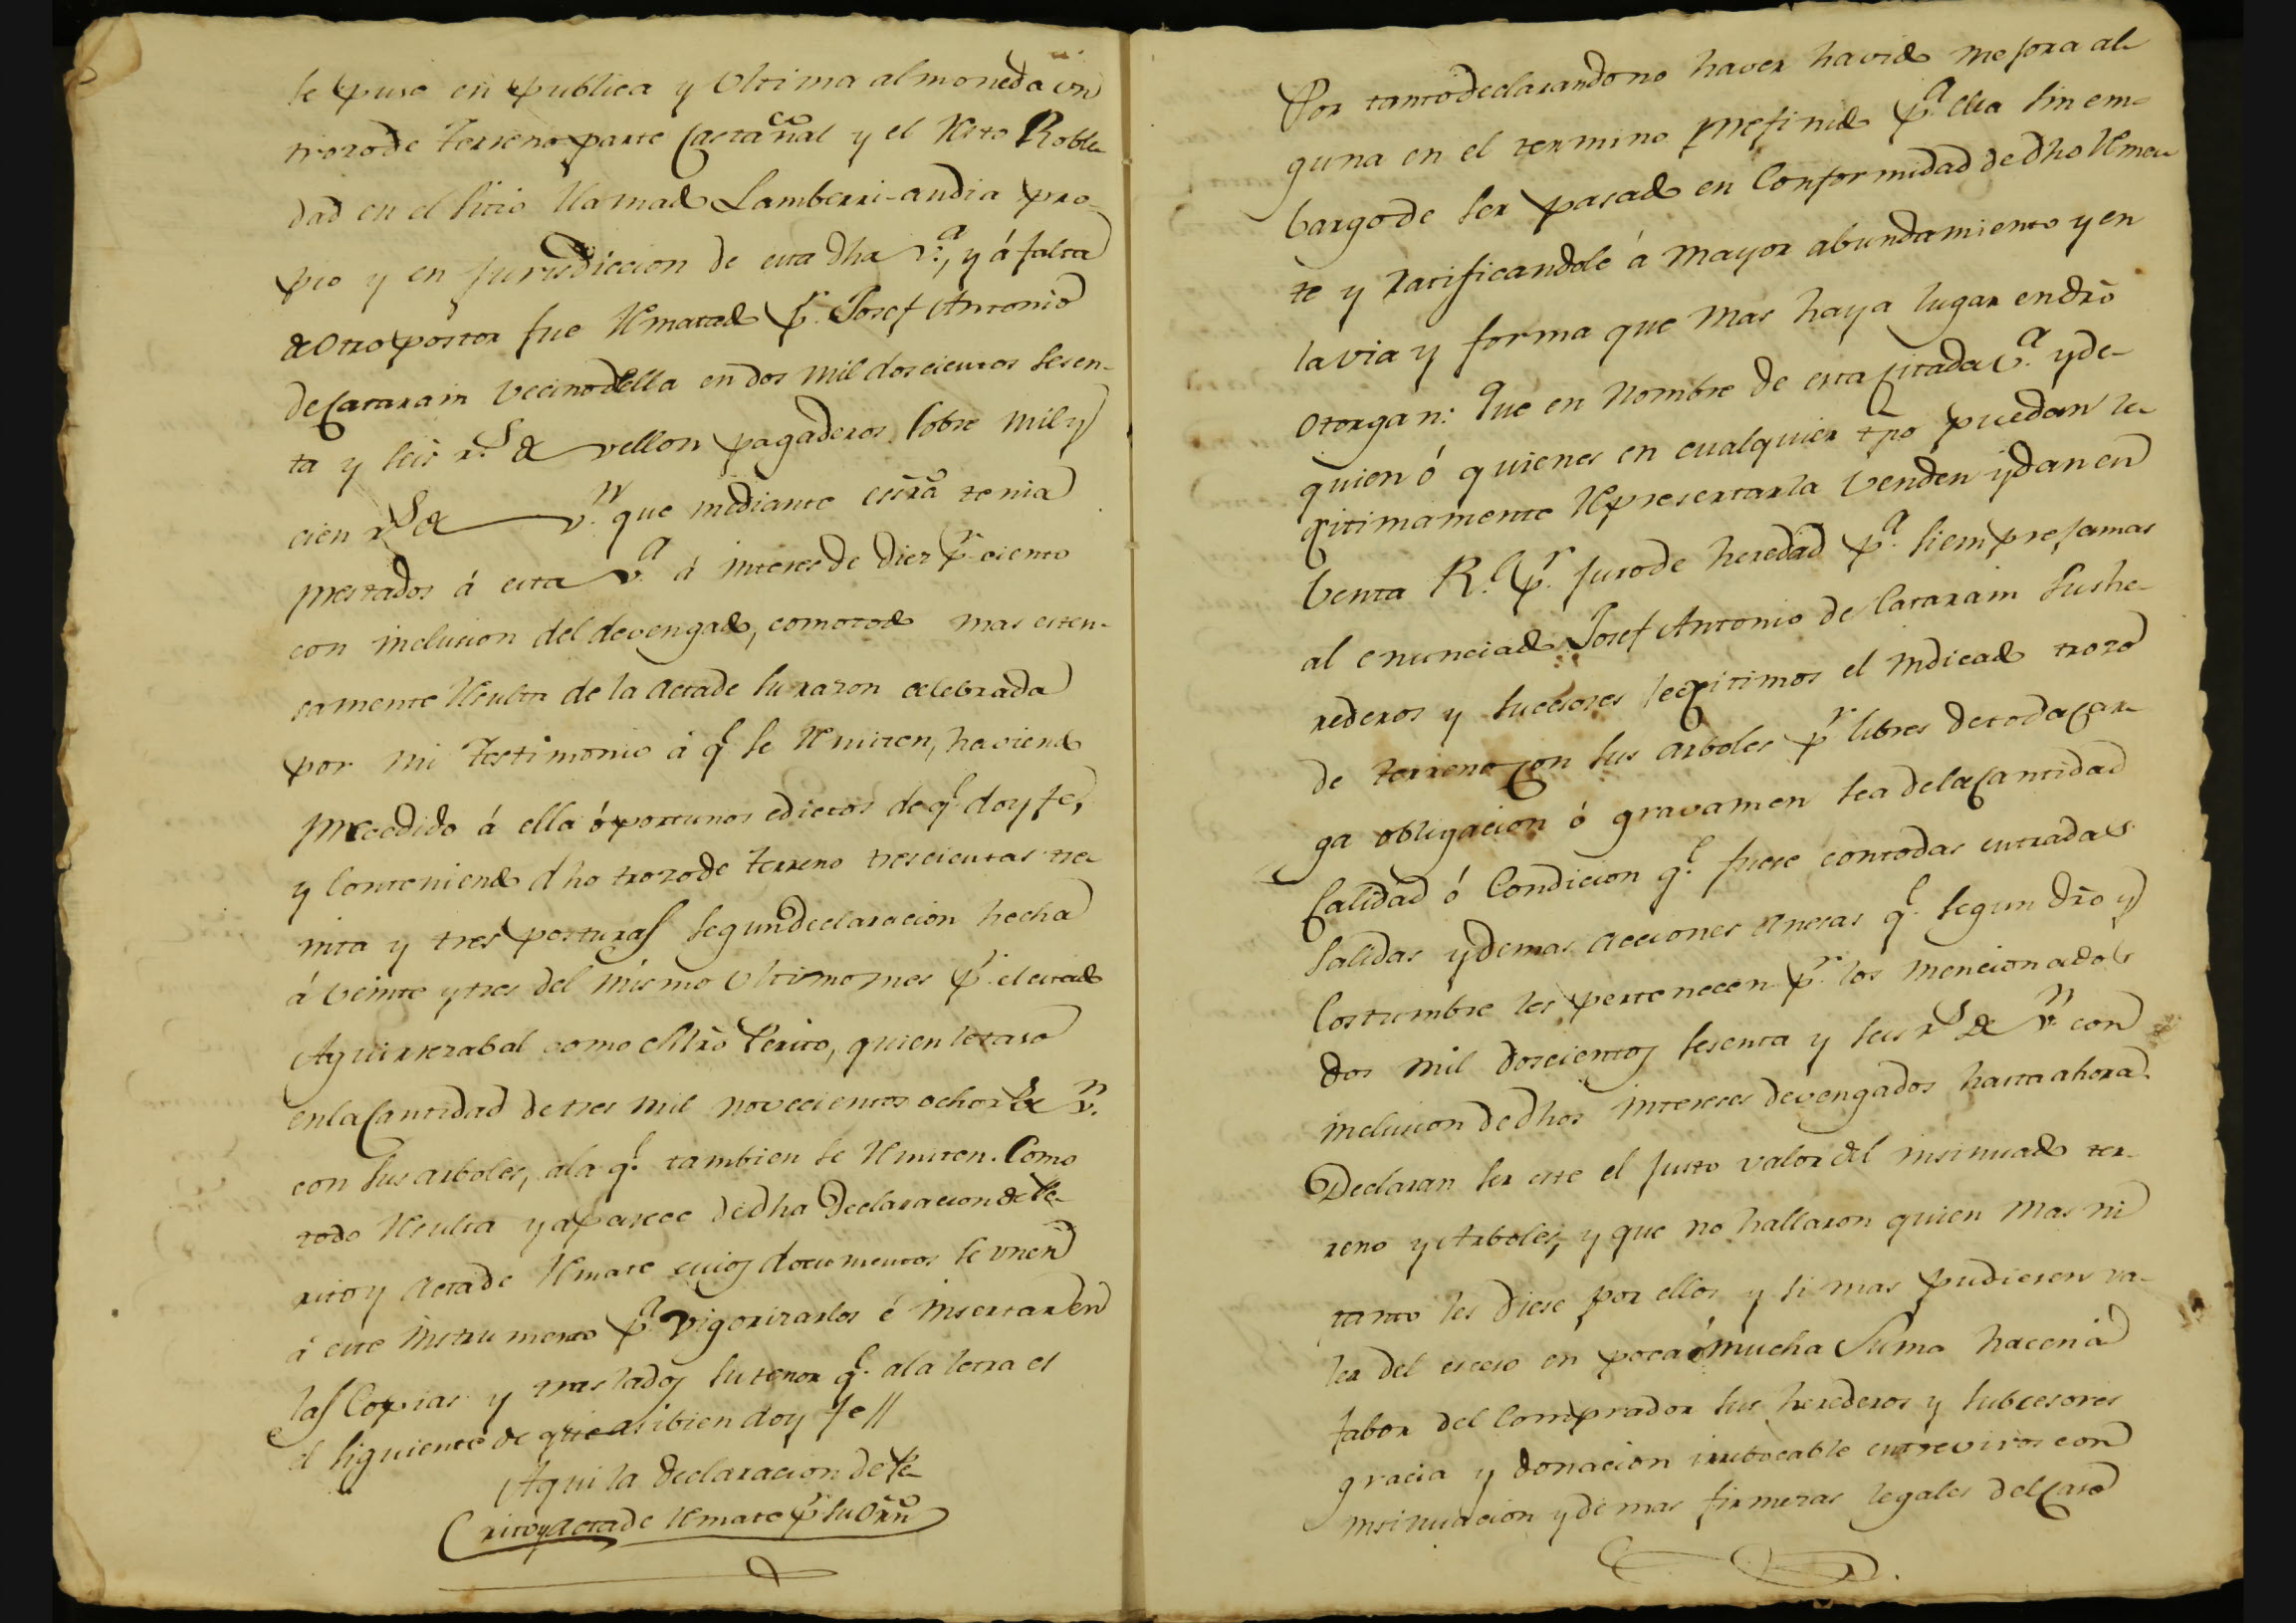 se puso en publica y Ultima almoneda un
trozo de Terreno parte Castañal y el Resto Roble
dad en el Sitio llamado Lamberri-andia pro-
pio y en Jurisdiccion de esta dha v.ª, y á falta
de Otro postor fue Rematado p.r Josef Antonio
de Catarain Vecino de ella en dos mil doscientos Sesen-
ta y seis r.s de vellon pagaderos Sobre mil y
cien r.s de v.n que mediante essrã tenia
prestados á esta v.ª á interes de diez p.r ciento
con inclusion del devengado, como todo mas esten-
samente Resulta de la Acta de su razon celebrada
por mi Testimonio á q.e se Remiten, haviendo
Precedido á ella oportunos edictos de q.e doy fe,
y Conteniendo dho trozo de Terreno trescientas tre-
inta y tres posturas segun declaracion hecha
á Veinte y tres del mismo Ultimo mes p.r el citado
Aguirrezabal como Mrõ Perito, quien lo tasó
en la Cantidad de tres mil novecientos ocho r.s de v.n
con Sus arboles, a la q.e tambien se Remiten. Como
todo Resulta y aparece de dha Declaracion de Pe-
rito y Acta de Remate cuios documentos se unen
á este Instrumento p.ª vigorizarlos é Insertar en
las Copias y traslados su tenor q.e a la letra es
el siguiente de que asibien doy fe //
Aqui la declaracion de Pe-
rito y Acta de Remate p.r su Orñ
Por tanto declarando no haver havido mejora al-
guna en el termino prefinido p.ª ella sin em-
bargo de ser pasado en Conformidad de dho Rema-
te y ratificandole á mayor abundamiento y en
la via y forma que mas haya lugar en drõ
Otorgan: Que en Nombre de esta citada v.ª y de-
quien ó quienes en cualquier tpõ puedan le-
gitimamente Representarla Venden y dan en
Venta R.l p.r Juro de heredad p.ª siempre jamas
al enunciado Josef Antonio de Catarain Sus he-
rederos y succesores legitimos el indicado trozo
de terreno con sus arboles p.r libres de toda car-
ga obligacion ó gravamen sea de la Cantidad
Calidad ó Condicion q.e fuese con todas entradas
Salidas y demas acciones anexas q.e segun drõ y
Costumbre les pertenecen p.r los mencionados
dos mil doscientos sesenta y seis r.s de v.n con
inclusion de dhos intereses devengados hasta ahora.
Declaran ser este el Justo valor del insinuado ter-
reno y Arboles, y que no hallaron quien mas ni
tanto les diese por ellos y si mas pudiesen va-
ler del exceso en poca ó mucha Suma hacen á
fabor del Comprador sus herederos y Subcesores
gracia y donacion irrebocable entre vivos con
insinuacion y demas firmezas legales del Caso